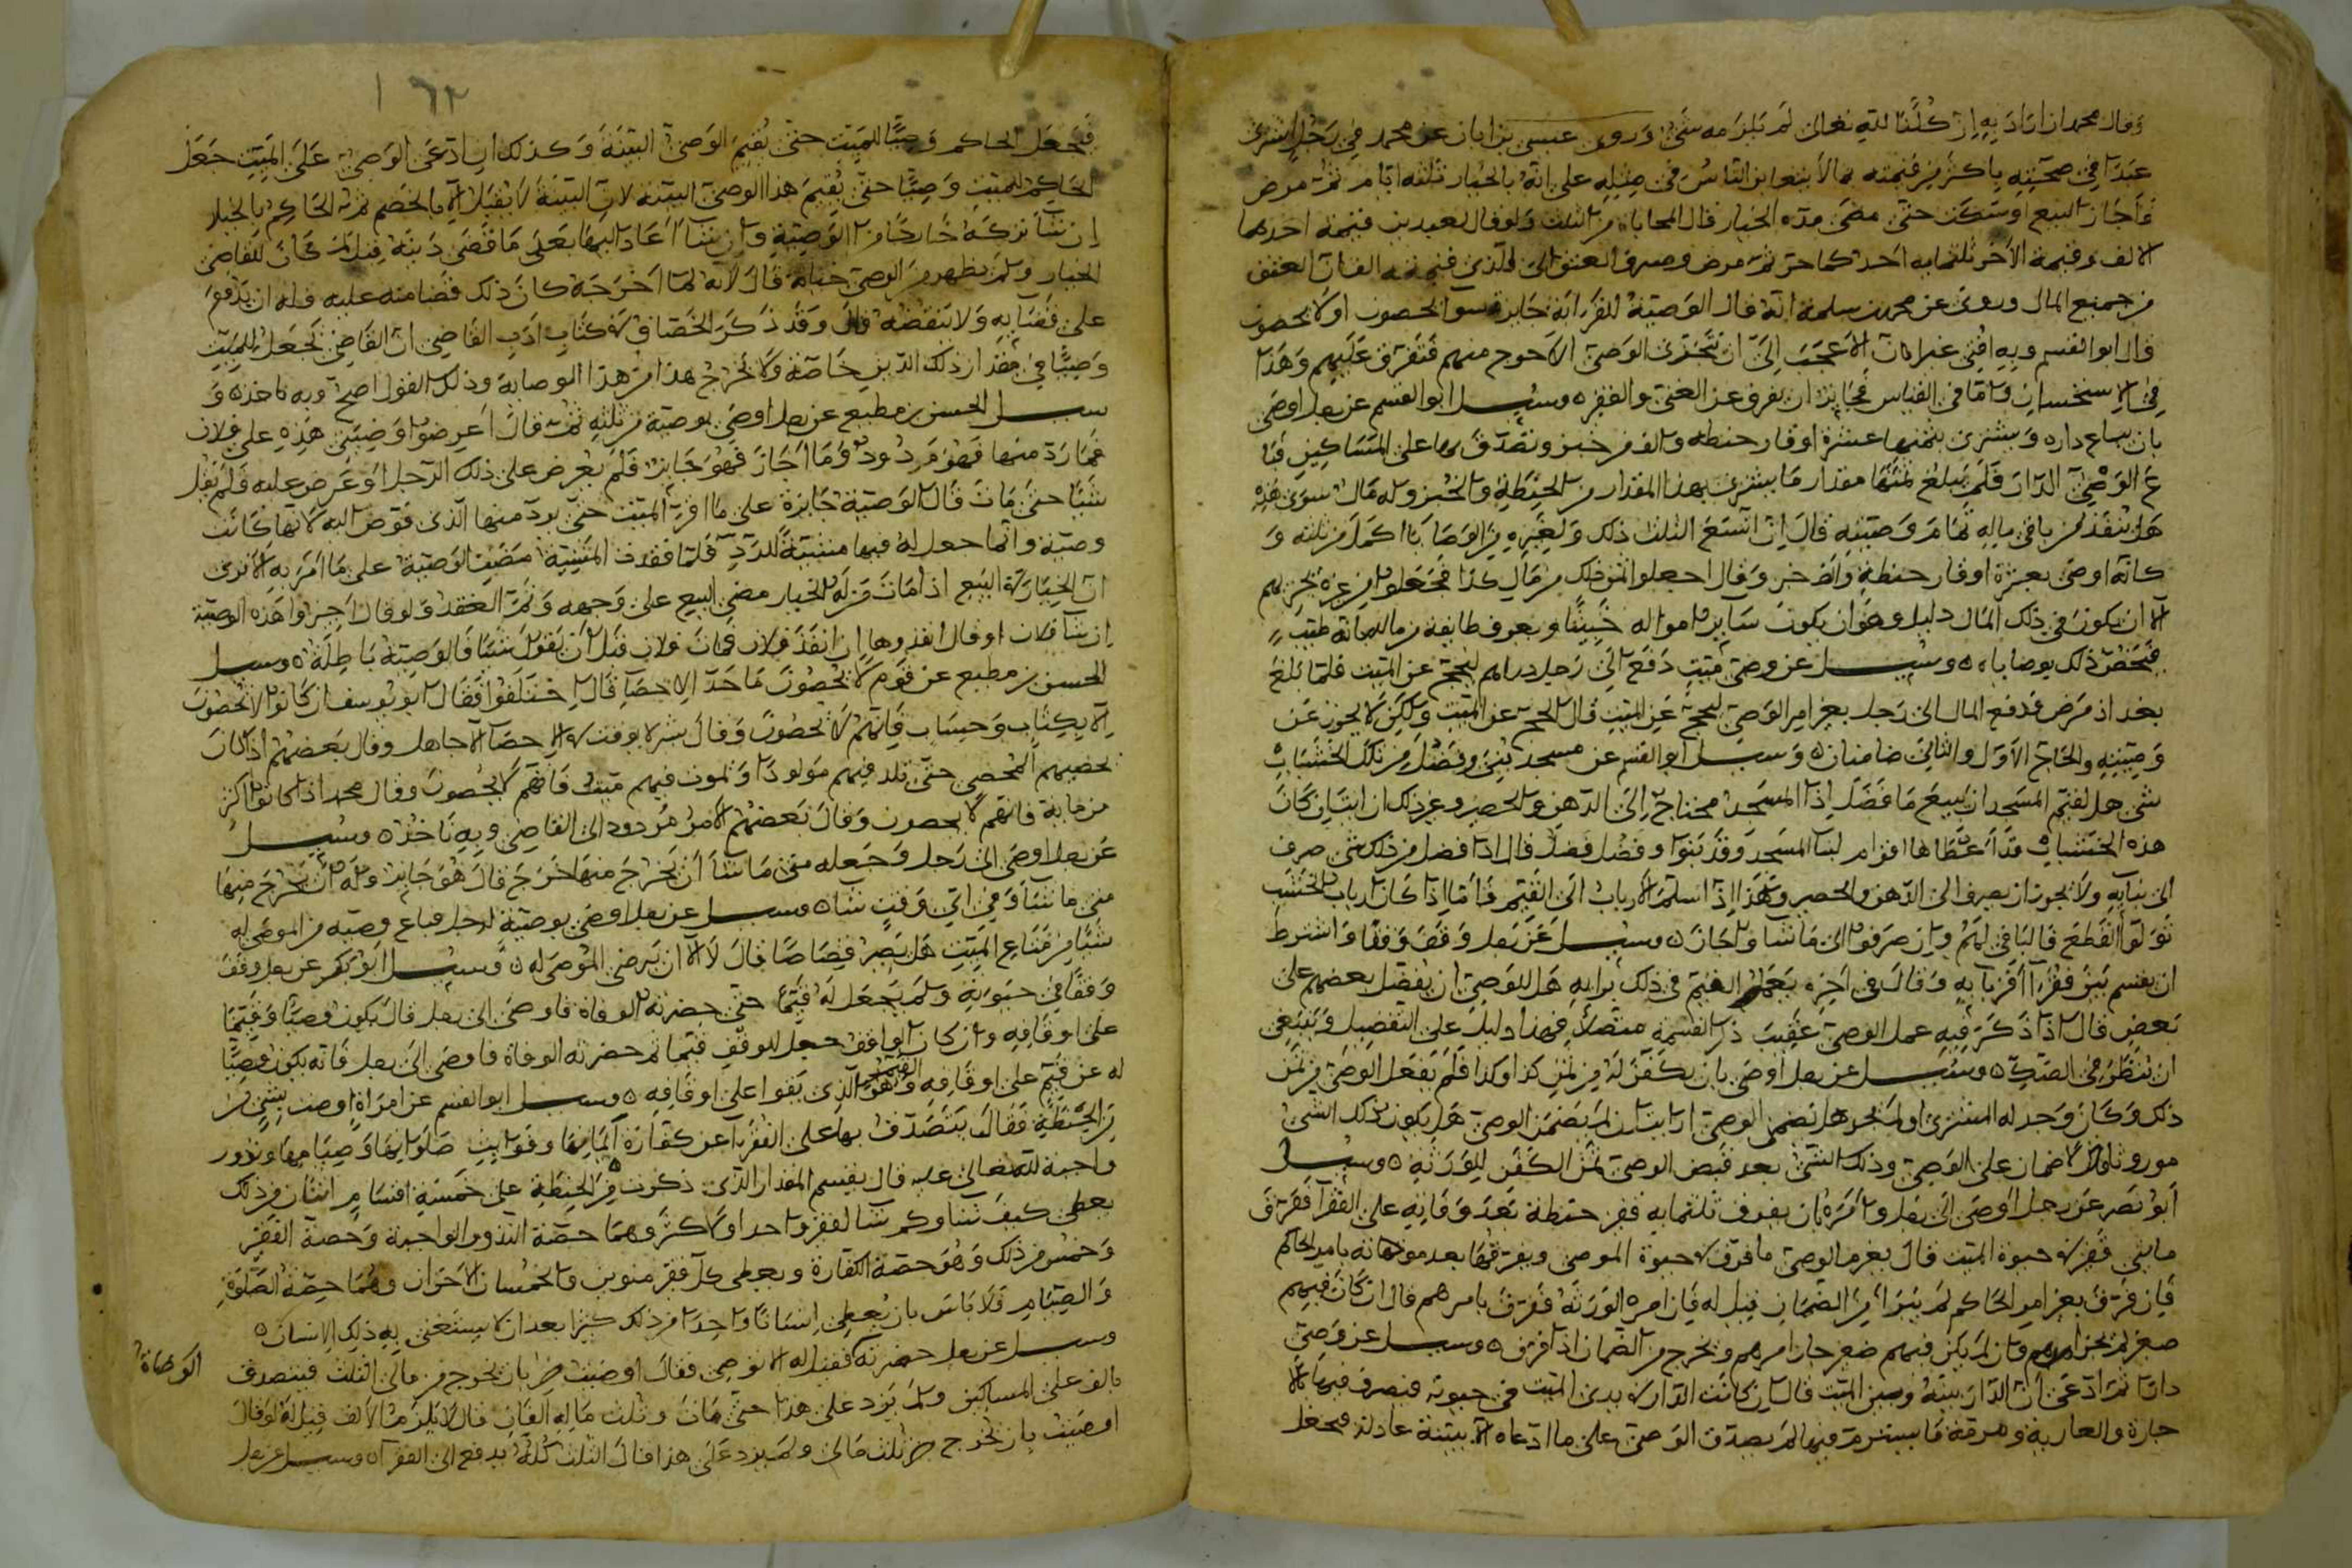 وقال محمد ان اراد به ان كلنا لله تعالى لم يلزمه شيء وروى عيسى بن ابان عن محمد في رجل اشترى
عبدا في صحته باكثر من قيمته بما لا يتغابن الناس في مثله على انه بالخيار ثلثه ايام ثم مرض
فاجاز البيع او سكت حتى مضى مده الخيار قال المحاباه من الثلث ولو قال لعبدين قيمة احدهما
الالف وقيمة الاخر ثلثمايه احدكما حر ثم مرض وصرف العتق الى الذي قيمته الف ان العتق
من جميع المال وروى عن محمد بن سلمه انه قال الوصية للقرابة جايزة سوا يحصون او لا يحصون
قال ابو القسم وبه افتي غير ان الاعجب الي ان يتحرى الوصي الاحوج منهم فتفرق عليهم وهذا
في الاستحسان واما في القياس فجايز ان يفرق عن الغني والفقير وسيل ابو القسم عن رجل اوصى
بان يباع داره ويشترى بثمنها عشرة اوقار حنطه والف من خبز وتصدق بها على المساكين فبا
ع الوصي الدار فلم يبلغ ثمنها مقدار ما يشترى بهذا المقدار من الحنطة والخبز وله مال سوى هذه
هل ينفذ من باقي ماله تمام وصيته قال ان اتسع الثلث ذلك ولغيره من الوصايا اكمل من ثلثه و
كانه اوصى بعشرة اوقار حنطة والف خبز وقال اجعلوا ثمن ذلك من مال كذا فجعلوا من غيره يجزيهم
الا ان يكون في ذلك المال دليل وهو ان يكون ساير امواله خبيثا ويعرف طايفة من ماله انه طيب
فتخص ذلك بوصاياه وسيل عن وصي ميت دفع الى رجل دراهم ليحج عن الميت فلما بلغ
بغداذ مرض فدفع المال الى رجل بغير امر الوصي ليحج عن الميت قال الحج عن الميت ولكن لا يجوز عن
وصيته والحاج الاول والثاني ضامنان وسيل ابو القسم عن مسجد بني وفضل من تلك الخشبات
شي هل لقيم المسجد ان يبيع ما فضل اذا المسجد محتاج الى الدهن والحصير وغير ذلك ان ابتاين كان
هذه الخشبات قد اعطاها اقوام لبنا المسجد وقد بنوا وفضل فضل قال اذا فضل من ذلك شي صرف
الى بنايه ولا يجوز ان يصرف الى الدهن والحصير وهذا اذا اسلم الارباب الى القيم فاما اذا كان ارباب الخشب
تولوا القطع فالباقي لهم وان صرفوا الى ما شاوا جاز وسيل عن رجل وقف وقفا واشترط
ان يقسم بين فقرا اقربايه وقال في اخره يعمل القيم في ذلك برايه هل للوصي ان يفضل بعضهم على
بعض قال اذا ذكر فيه عمل الوصي عقيب ذكر القسمة متصلا فهذا دليل على التفضيل وينبغي
ان ينظر في الصك وسيل عن رجل اوصى بان يكفن له من ثمن كذا وكذا فلم يفعل الوصي من ثمن
ذلك وكان وجد له المشترى او لم يجد هل يضمن الوصي ارايت ان لم يضمن الوصي هل يكون ذلك الشي
موروثا قال لا ضمان على الوصي وذلك الشي بعد قبض الوصي ثمن الكفن للورثة وسيل
ابو نصر عن رجل اوصى الى رجل وامره بان يفرق ثلثمايه قفيز حنطة بعد وفاته على الفقرا ففرق
مايتي قفيز في حيوة الميت قال يغرم الوصي ما فرق في حيوة الموصي ويفرقها بعد موته بامر الحاكم
فان فرق بغير امر الحاكم لم يبرا من الضمان قيل له فان امره الورثة ففرق بامرهم قال ان كان فيهم
صغير لم يجز امرهم وان لم يكن فيهم صغير جاز امرهم ويخرج من الضمان اذا فرق وسيل عن وصي
دارا ثم ادعى ان الدار بينه وبين الميت قال ان كانت الدار في يدي الميت في حيوته فتصرف فيها بالا
جارة والعارية ومرمة ما يسترم فيها لم يصدق الوصي على ما ادعاه الا ببينة عادلة فيجعل
فجعل الحاكم وصيا للميت حتى يقيم الوصي البينة وكذلك ان ادعى الوصي على الميت جعل
الحاكم للميت وصيا حتى يقيم هذا الوصي البينه لان البينة لا يقبل الا بالخصم ثم الحاكم بالخيار
ان شا تركه خارجا من الوصية وان شا اعاد اليها بعد ما قضى دينه قيل لم كان للقاضي
الخيار ولم يظهر من الوصي خيانة قال لانه لما اخرجه كان ذلك قضا منه عليه فله ان يدفع
على قضايه ولا ينقضه قال وقد ذكر الخصاف في كتاب ادب القاضي ان القاضي يجعل للميت
وصيا في مقدار ذلك الدين خاصة ولا يخرج هذا من هذا الوصاية وذلك القول اصح وبه ناخذ و
سيل الحسن بن مطيع عن رجل اوصى بوصية من ثلثه ثم قال اعرضوا وصيتي هذه على فلان
فما رد منها فهو مردود وما اجاز فهو جايز فلم يعرض على ذلك الرجل او عرض عليه فلم يقل
شيا حتى مات قال الوصية جايزة على ما اقر الميت حتى يرد منها الذي فوض اليه لانها كانت
وصية وانما جعل له فيها مشية للرد فلما فقدت المشية مضت الوصية على ما امر به الا ترى
ان الخيار في البيع اذا مات من له الخيار مضى البيع على وجهه وتم العقد ولو قال اجيزوا هذه الوصية
ان شا فلان او قال انفذوها ان انفذ فلان فمات فلان قبل ان يقول شيا فالوصية باطلة وسيل
الحسن بن مطيع عن قوم لا يحصون ما حد الاحصا قال اختلفوا فقال ابو يوسف ان كانوا لا يحصون
الا بكتاب وحساب فانهم لا يحصون وقال بشر لا يوقت في الاحصا الا جاهل وقال بعضهم اذا كان
يحصيهم المحصي حتى يلد فيهم مولود او يموت فيهم ميت فانهم لا يحصون وقال محمد اذا كانوا اكثر
من ماية فانهم لا يحصون وقال بعضهم الامر مردود الى القاضي وبه ناخذ وسيل
عن رجل اوصى الى رجل وجعله متى ما شا ان يخرج منها خرج قال هو جايز وله ان يخرج منها
متى ما شا وفي اي وقت شا وسيل عن رجل اوصى بوصية لرجل فباع وصيه من الموصى له
شيا من متاع الميت هل يصير قصاصا قال لا الا ان يرضى الموصى له وسيل ابو بكر عن رجل وقف
وقفا في حيوته ولم يجعل له قيما حتى حضرته الوفاة فاوصى الى رجل قال يكون وصيا وقيما
على اوقافه وان كان الواقف جعل للوقف قيما ثم حضرته الوفاة فاوصى الى رجل فانه يكون وصيا
له عن قيم على اوقافه وهو الذي بقوا على اوقافه وسيل ابو القسم عن امراة اوصت بشي من
الحنطة فقال يتصدق بها على الفقرا عن كفارة ايمانها وفوايت صلواتها وصيامها ونذور
واجبة لله تعالى عليه قال يقسم المقدار الذي ذكرت من الحنطة على خمسة اقسام اثنان من ذلك
يعطى كيف شا وكم شا لفقير واحد او لاكثر وهما حصة النذور الواجبة وحصة الفقير
وخمس من ذلك وهو حصة الكفارة ويعطى كل فقير منوين والخمسان الاخران وهما حصة الصلوة
والصيام فلا باس بان يعطى انسانا واحدا من ذلك كثيرا بعد ان لا يستغني به ذلك الانسان
وسيل عن رجل حضرته الوفاة فقيل له الا توصي فقال اوصيت بان يخرج من مالي الثلث فيتصدق
بالف على المساكين ولم يزد على هذا حتى مات وثلث ماله الفان قال لا يلزم الا الالف قيل له لو قال
اوصيت بان يخرج من ثلث مالي ولم يزد على هذا قال الثلث كله يدفع الى الفقرا وسيل عن رجل